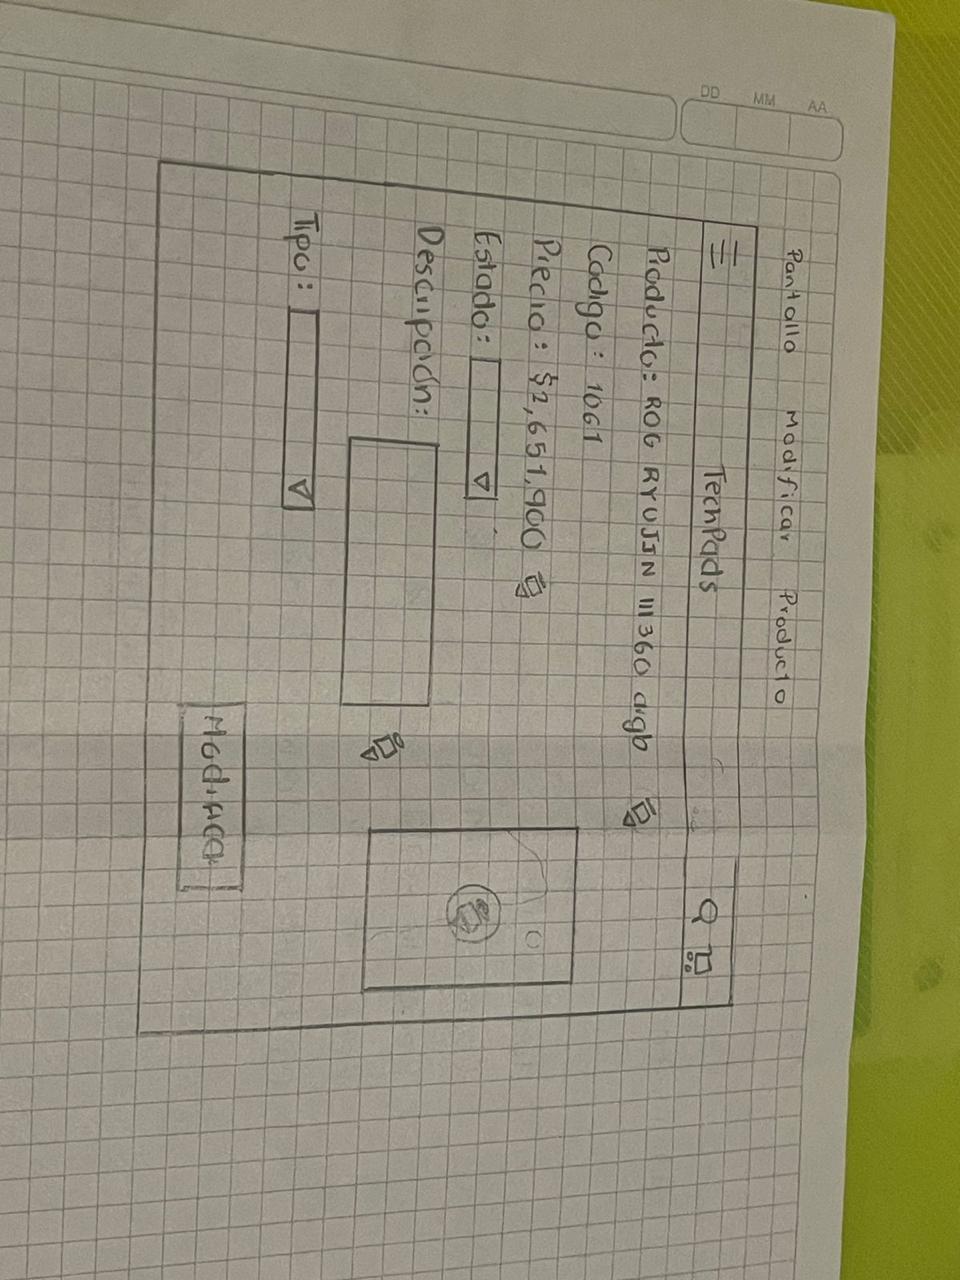 DD MM AA
Pantalla Modificar Producto
TechPads
Producto: ROG RYUJIN III 360 argb
Codigo: 1061
Precio: $2,651,900
Estado:
Descripción:
Tipo:
Modificar